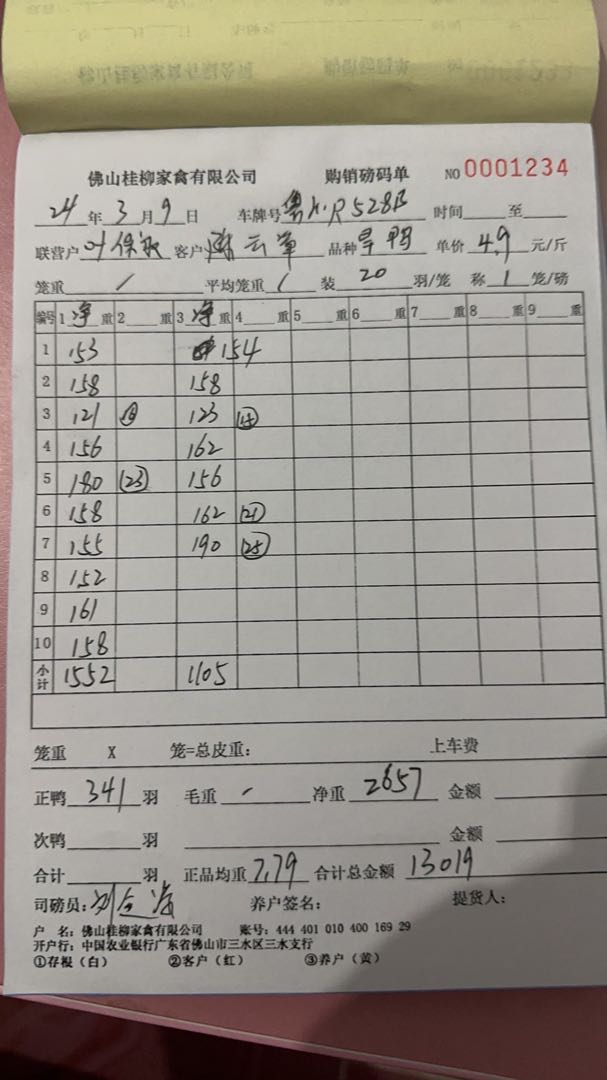 佛山桂柳家禽有限公司 购销磅码单 NO 0001234
24 年 3 月 9 日 车牌号 R528B 时间 至
联营户 叶保 客户 云单 品种 旱鸭 单价 4.9 元/斤
笼重 / 平均笼重 / 装 20 羽/笼 称 1 笼/磅
编号 1 净 重 2 重 3 净 重 4 重 5 重 6 重 7 重 8 重 9 重
1 153 154
2 158 158
3 121 123
4 156 162
5 180 (23) 156
6 158 162 (21)
7 155 190 (25)
8 152
9 161
10 158
小计 1552 1105
笼重 X 笼=总皮重: 上车费
正鸭 341 羽 毛重 - 净重 2657 金额
次鸭 羽 金额
合计 羽 正品均重 7.79 合计总金额 13019
司磅员: 刘 养户签名: 提货人:
户 名: 佛山桂柳家禽有限公司 账号: 444 401 010 400 169 29
开户行: 中国农业银行广东省佛山市三水区三水支行
①存根(白) ②客户(红) ③养户(黄)